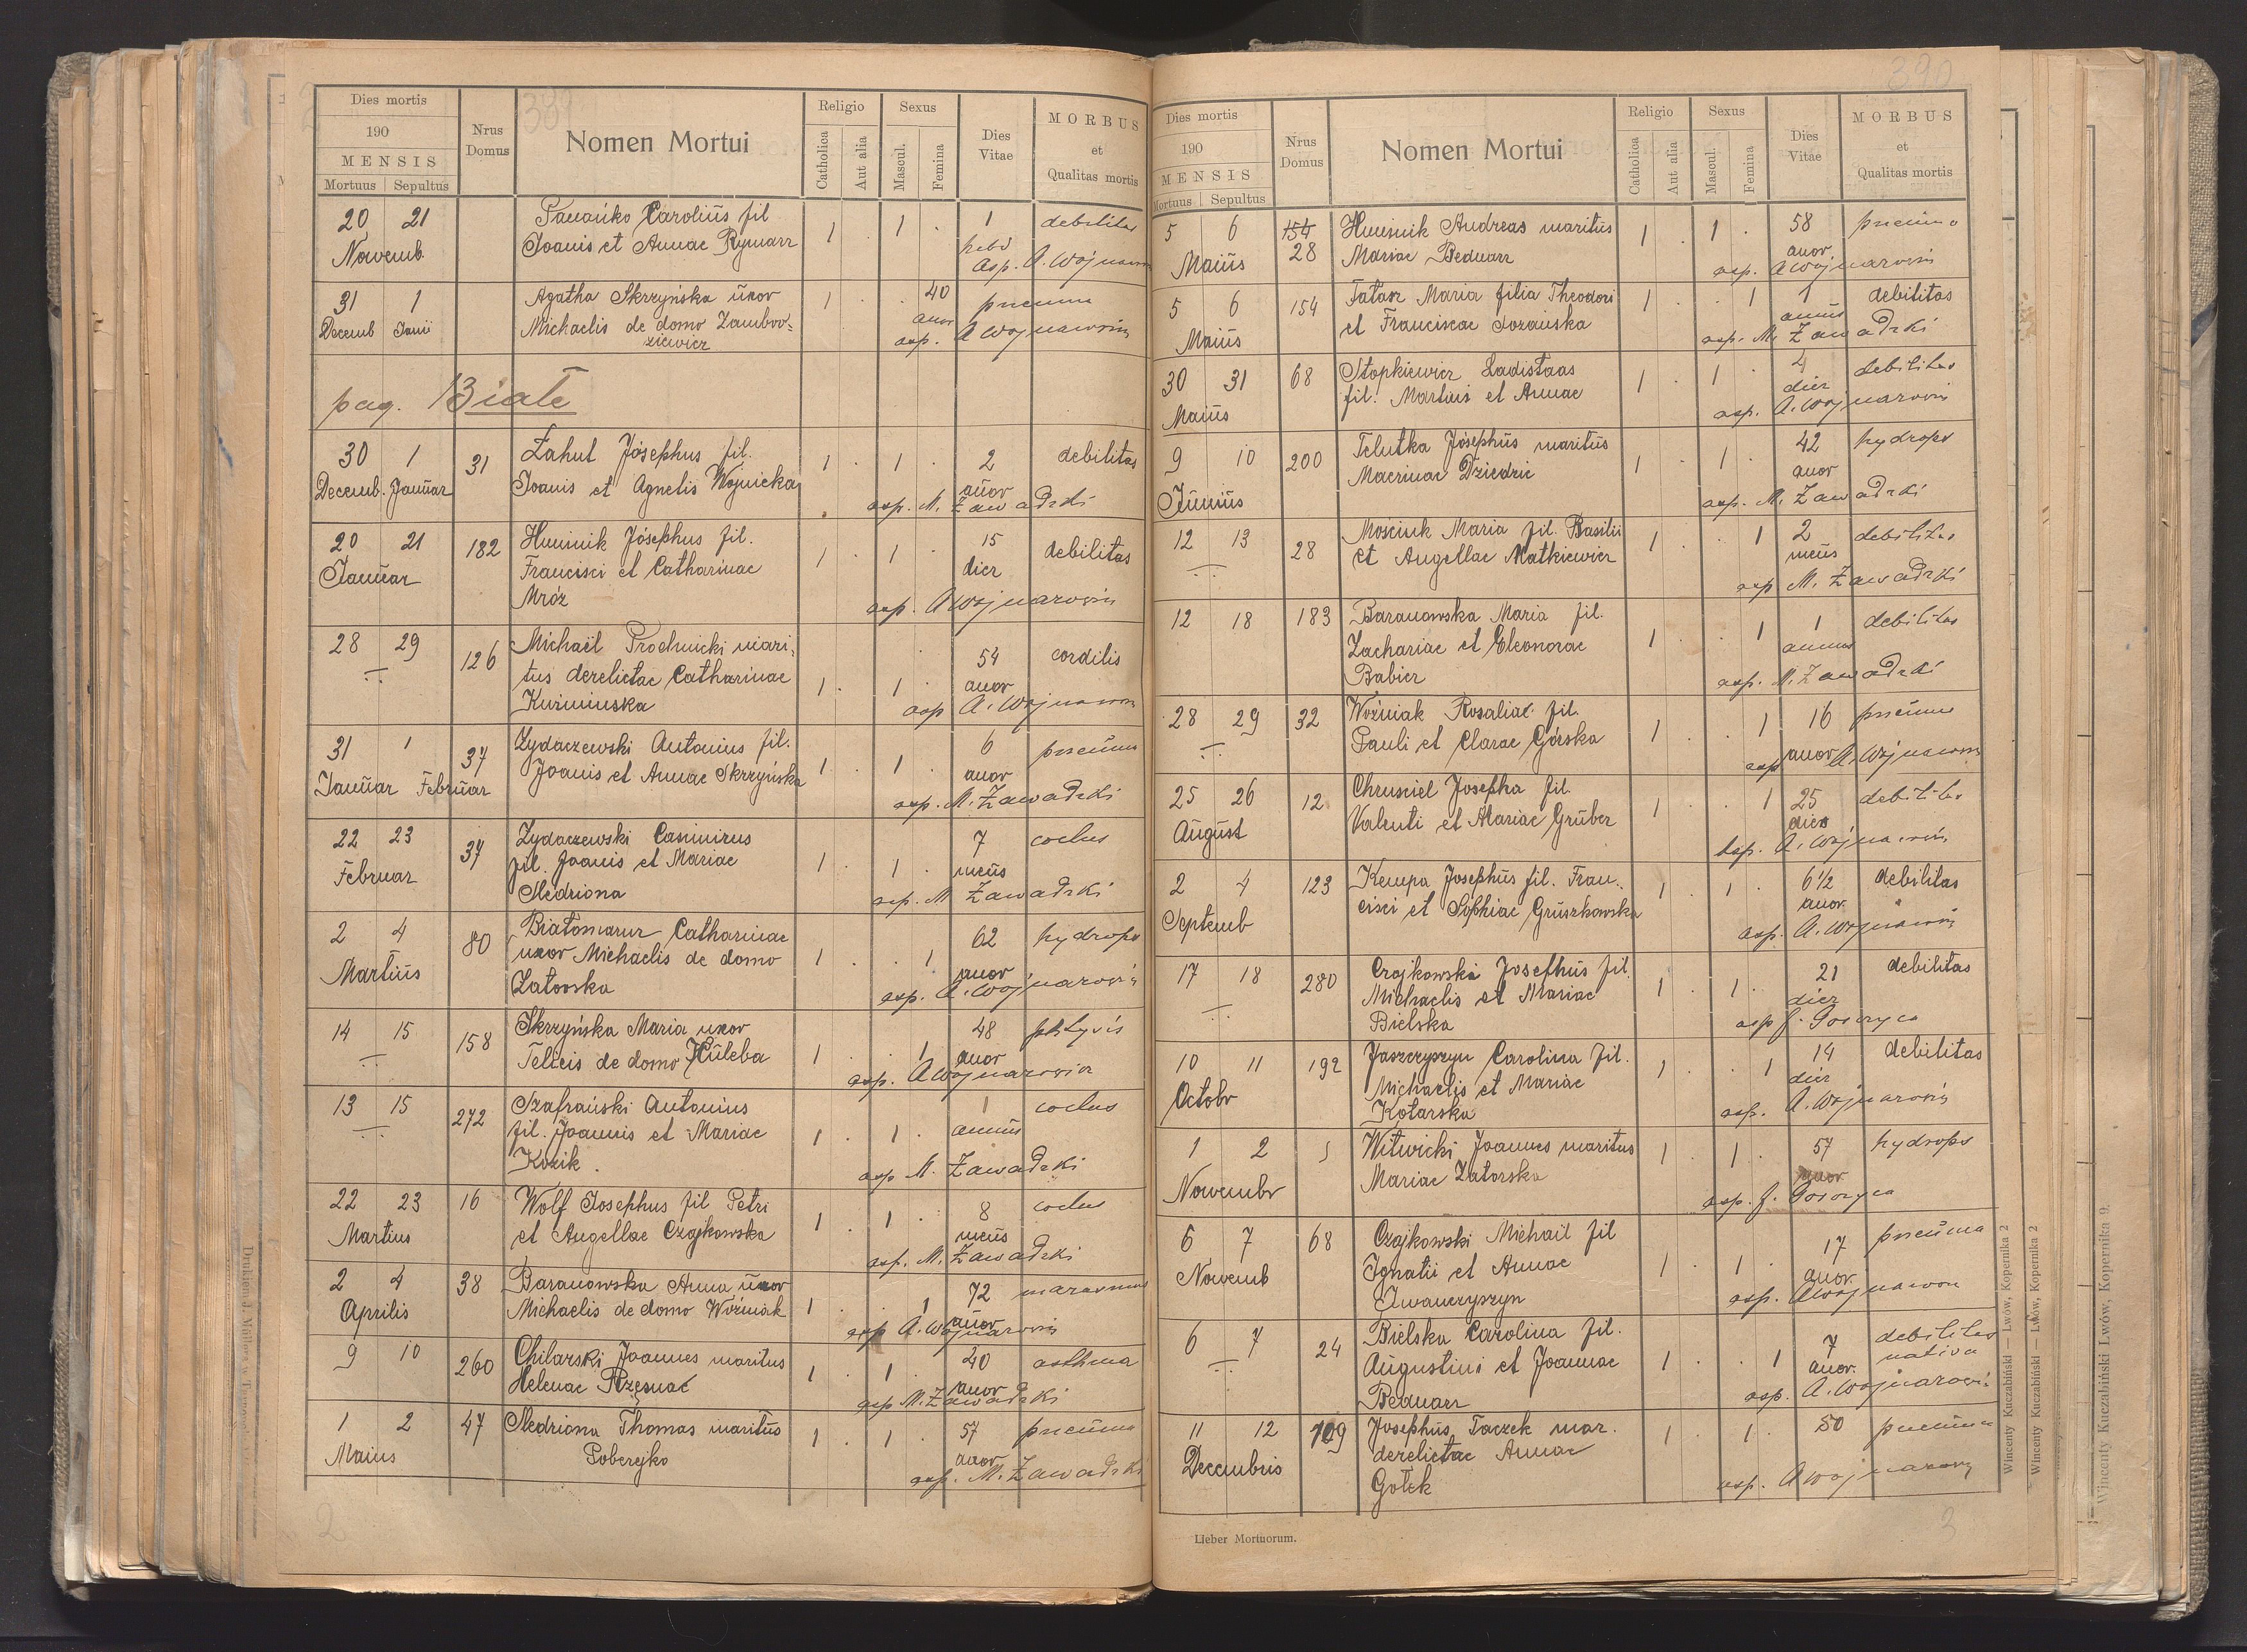 389
Dies mortis
190
MENSIS
Mortuus Sepultus
Nrus Domus
Nomen Mortui
Religio
Catholica
Aut alia
Sexus
Mascul.
Femina
Dies Vitae
MORBUS
et
Qualitas mortis
20 21 Carolius fil 1 . 1 . 1 debilitas
Novemb. Joanis et Annae Rymarz
asp. A. Wojnarow
31 1 Agatha Skrzyńska uxor 1 . . 40 pneum
Decemb Janii Michaelis de domo Zambro= anor
ziewicz asp. A Wojnarowin
pag. Białe
30 1 31 Łahut Jósephus fil. 1 . 1 . 2 debilitas
Decemb. Januar Joanis et Agnetis Wojnicka anor
asp. M. Zawadzki
20 21 182 Humnik Jósephus fil. 1 . 1 . 15 debilitas
Januar Francisci et Catharinae dier
Mróz asp. A Wojnarowin
28 29 126 Michaël Prochnicki mari- 54 cordilis
-:- tus derelictae Catharinae 1 . 1 . anor
Kuźmińska asp A. Wojnarow
31 1 37 Zydaczewski Antonius fil. 1 . 1 . 6 pneum
Januar Februar Joanis et Annae Skrzyńska anor
asp. M. Zawadzki
22 23 37 Zydaczewski Casimirus 7 coclus
Februar fil. Joanis et Mariae 1 . 1 . meus
Sledziona asp. M Zawadzki
2 4 80 Białomazur Catharinae 62 hydrops
Martius uxor Michaelis de domo 1 . . 1 anor
Zatorska asp. A. Wojnarowi
14 15 158 Skrzyńska Maria uxor 48 phtysis
-:- Felicis de domo Hūleba 1 . . 1 anor
asp. A Wojnarowin
13 15 272 Szafrański Antonius 1 coclus
-:- fil. Joannis et Mariae 1 . 1 . annus
Kozik. asp M. Zawadzki
22 23 16 Wolf Josephus fil Petri 1 . 1 . 8 coclus
Martius et Angellae Czajkowska meus
asp. M. Zawadzki
2 4 38 Baranowska Anna uxor 1 . . 1 72 marasmus
Aprilis Michaelis de domo Woźniak anor
asp A. Wojnarowin
9 10 260 Chilarski Joannes maritus 1 . 1 . 40 asthma
Helenae Rzęsnae anor
asp M. Zawadzki
1 2 47 Sledziona Thomas maritus 1 . 1 . 57 pneuma
Maius Poberejko anor
asp. M. Zawadzki
2
390
Dies mortis
190
MENSIS
Mortuus Sepultus
Nrus Domus
Nomen Mortui
Religio
Catholica
Aut alia
Sexus
Mascul.
Femina
Dies Vitae
MORBUS
et
Qualitas mortis
5 6 154 Humnik Andreas maritus 1 . 1 . 58 pneumo
Maius 28 Mariae Bednarz anor
asp. A Wojnarowin
5 6 154 Tatarz Maria filia Theodori 1 . . 1 1 debilitas
Maius et Franciscae Dozańska annus
asp. M. Zawadzki
30 31 68 Stopkiewicz Ladislaas 1 . 1 . 4 debilitas
Maius fil. Martini et Annae dier
asp. A. Wojnarowin
9 10 200 Telutka Jósephus maritus 1 . 1 . 42 hydrops
Junius Macrinae Dziedzic anor
asp. M. Zawadzki
12 13 28 Mościuk Maria fil. Basilii 1 . . 1 2 debilitas
-:- et Angellae Matkiewicz meus
asp M. Zawadzki
12 18 183 Baranowska Maria fil. 1 debilitas
Zachariae et Eleonorae 1 . . 1 annus
Babicz asp. M. Zawadzki
28 29 32 Woźniak Rosaliae fil. 1 . . 1 16 pneum
-:- Pauli et Clarae Górska anor
asp A. Wojnarow
25 26 12 Chrusciel Josepha fil. 1 . . 1 25 debilitas
August Valenti et Mariae Gruber dier
asp. A. Wojnarowin
2 4 123 Kempa Josephus fil. Fran- 1 . 1 . 6½ debilitas
Septemb cisci et Sophiae Gruszkowska anor
asp. A. Wojnarowin
17 18 280 Czajkowski Josephus fil. 21 debilitas
-:- Michaelis et Mariae 1 . 1 . dier
Bielska asp J.
10 11 192 Jaszczyszyn Carolina fil. 14 debilitas
Octobr Michaelis et Mariae 1 . . 1 dier
Kotarska asp. A. Wojnarowin
1 2 5 Witwicki Joannes maritus 1 . 1 . 57 hydrops
Novembr Mariae Zatorska anor
asp. J.
6 7 68 Czajkowski Michail fil 17 pneuma
Novemb Ignatii et Annae 1 . 1 . anor.
Iwanczyszyn asp. A Wojnarow
6 7 24 Bielska Carolina fil. 7 debilitas
-:- Augustini et Joannae 1 . . 1 anor. nativa
Bednarz asp. A. Wojnarowi
11 12 109 Josephus Taczek mar. 1 . 1 . 50 pneuma
Decembris derelictae Annae
Gołek asp. A Wojnarow
Lieber Mortuorum.
3
Wincenty Kuczabiński — Lwów, Kopernika 2
Wincenty Kuczabiński — Lwów, Kopernika 2
Wincenty Kuczabiński Lwów, Kopernika 9.